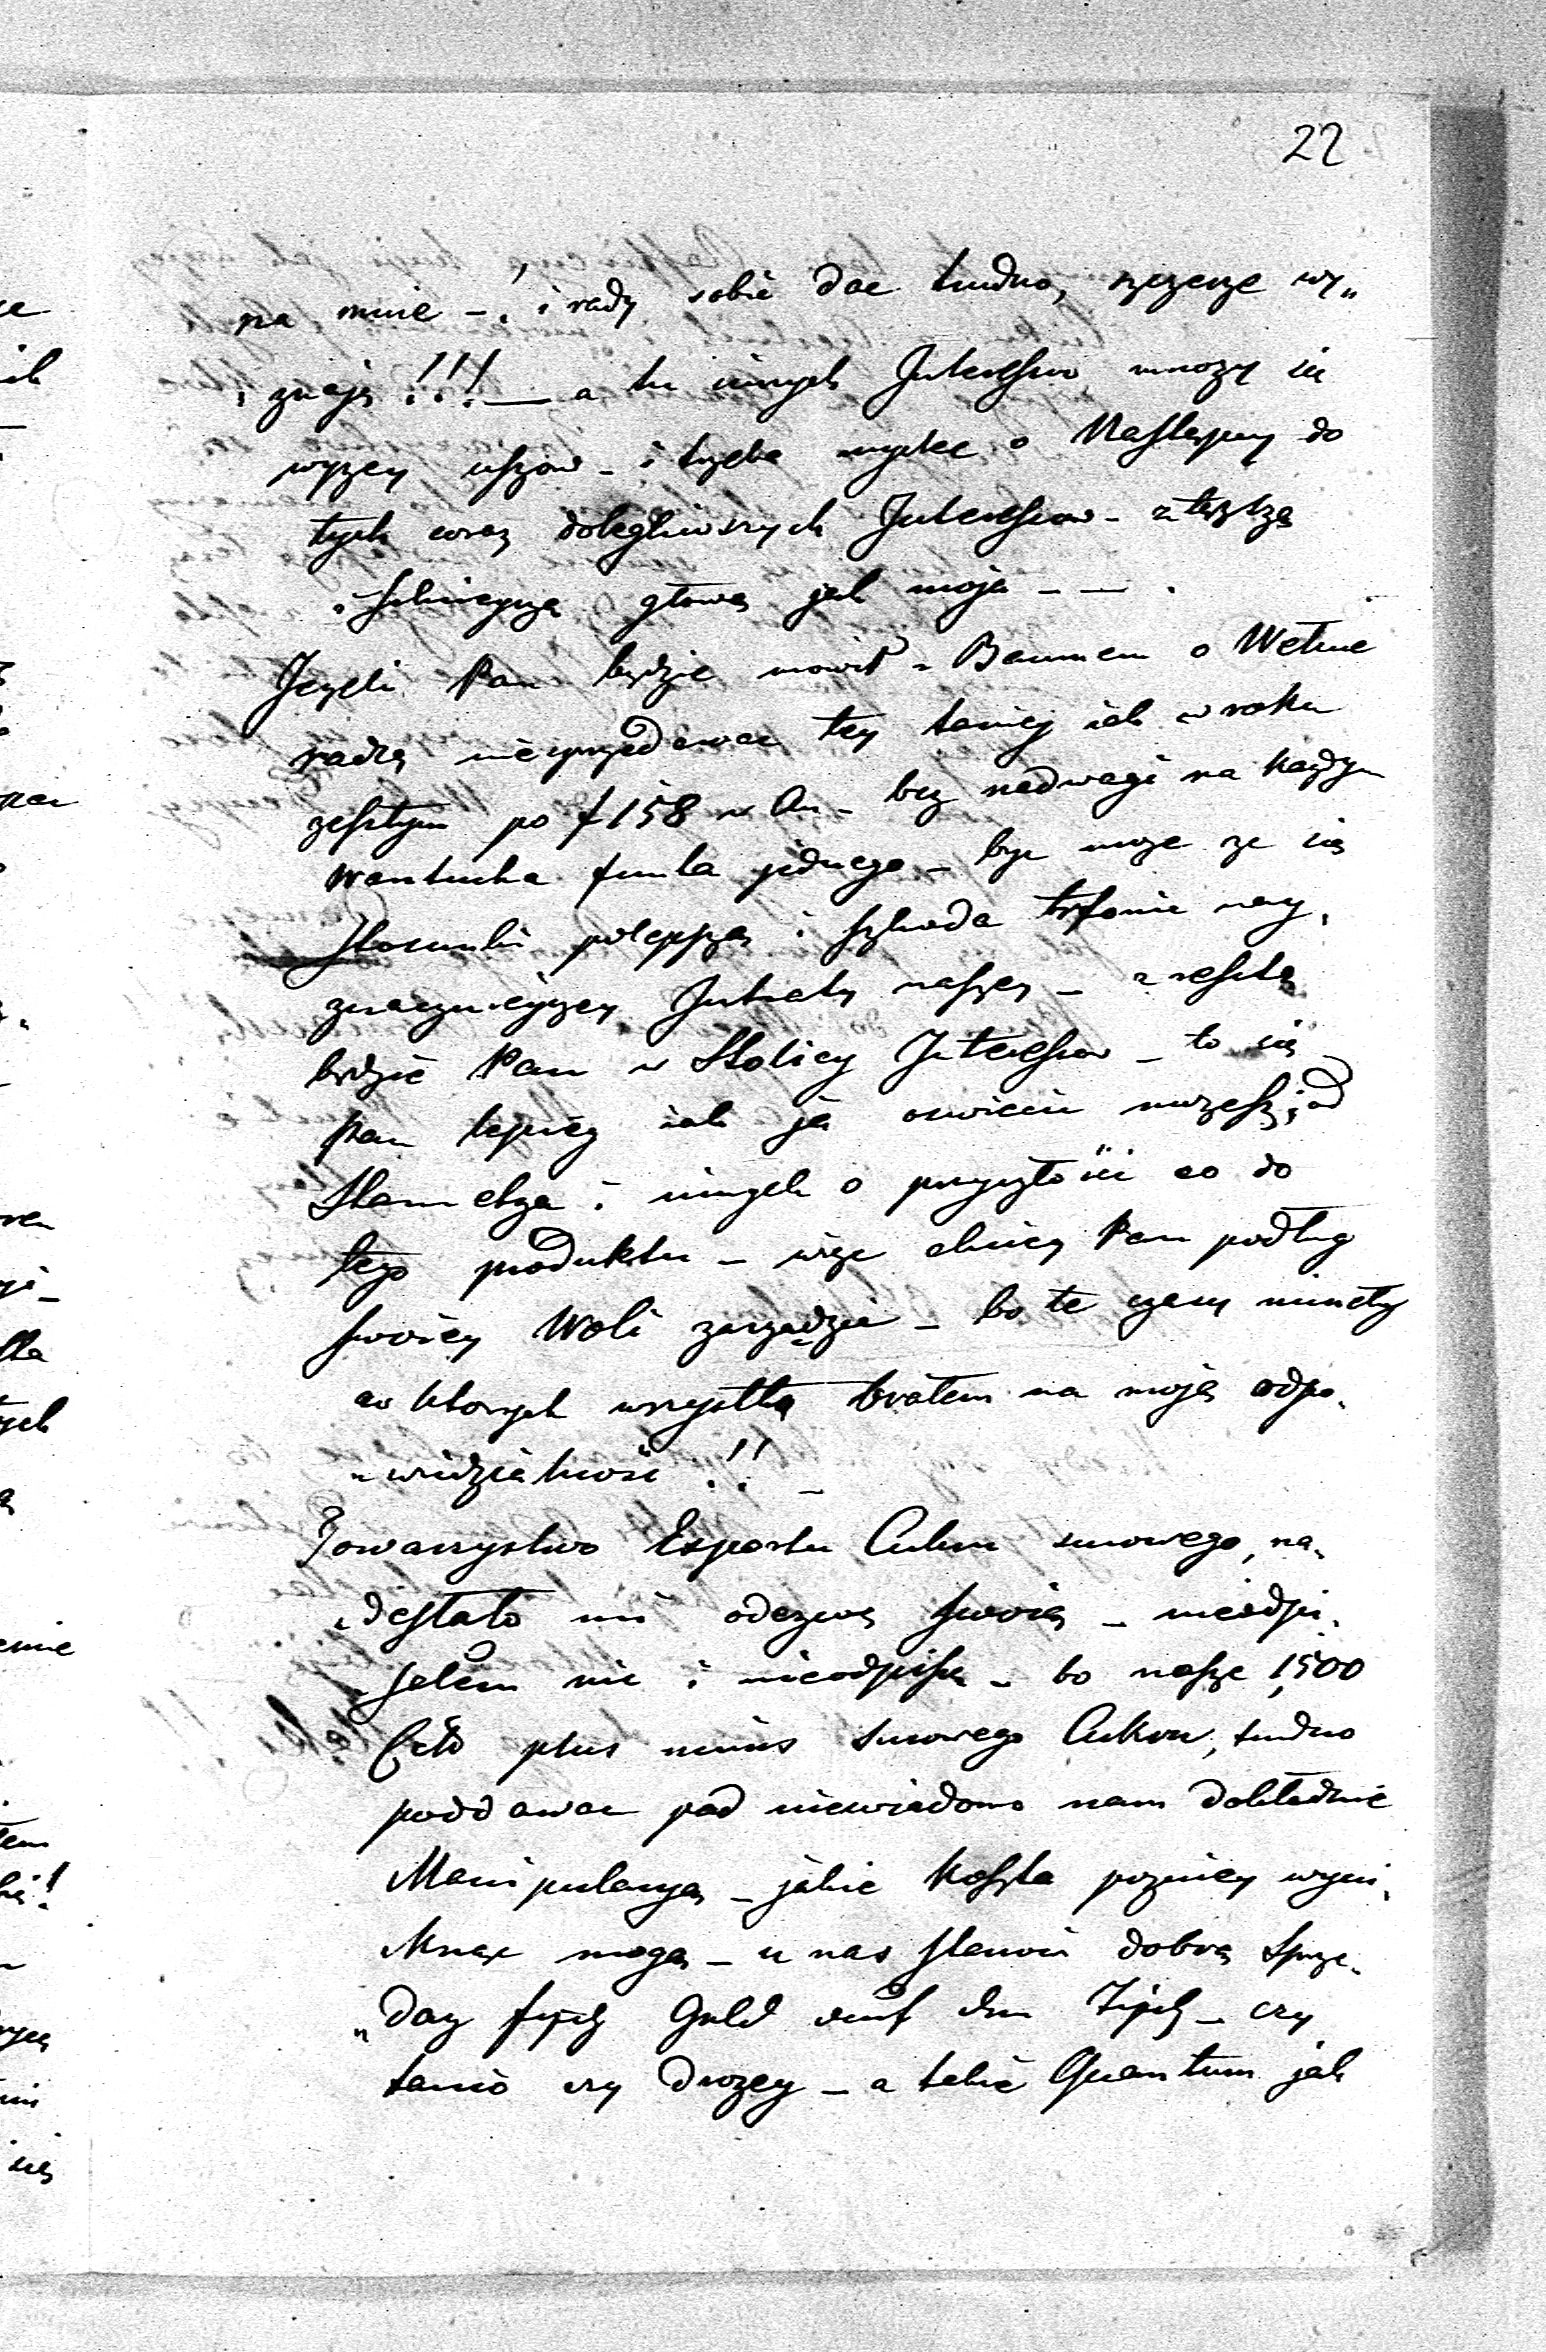 22
na mnie –! i rady sobie dac trudno, szczerze wy„
„znaję !!! — a tu innych Interessow mnozy się
wyzey uszow – i trzeba myslec o Nastempcy do
tych coraz dolegliwszych Interessow – z tęższą
i silnieyszą głową jak moja – — .
Jezeli Pan będzie mowił z Baumem o Wełnie
radzę nieprzedawac tey taniej iak w roku
zeszłym po f 158 w Au – bez nadwagi na kazdym
Wantuchu funta jednego – byc moze ze się
Stosunki polepszą i szkoda tyfonie nay„
znacznieyszey Intraty naszey – z resztą
będzie Pan w Stolicy Interessow – to się
Pan lepiey iak ja oswiecic mozesz, od
Stametza i innych o przyszłości co do
tego produktu – więc chciey Pan podług
swoiey Woli zarządzic – bo te czasy mineły
w ktorych wszystko brałem na moją odpo„
„wiedzialność !! –
Towarzystwo Exportu Cukru surowego, na„
„desłało mi odezwę swoią – nieodpi„
„sałem nic i nieodpiszę – bo nasze 1,500
Cetn plus minus surowego Cukru, trudno
poddawac pod niewiadomo nam dokładnie
Manipulacyą – jakie koszta pozniey wyni„
„knąc mogą – u nas stanowi dobrą Sprze„
„daz Zipfl – czy
tanio czy drozey – a takie Quantum jak